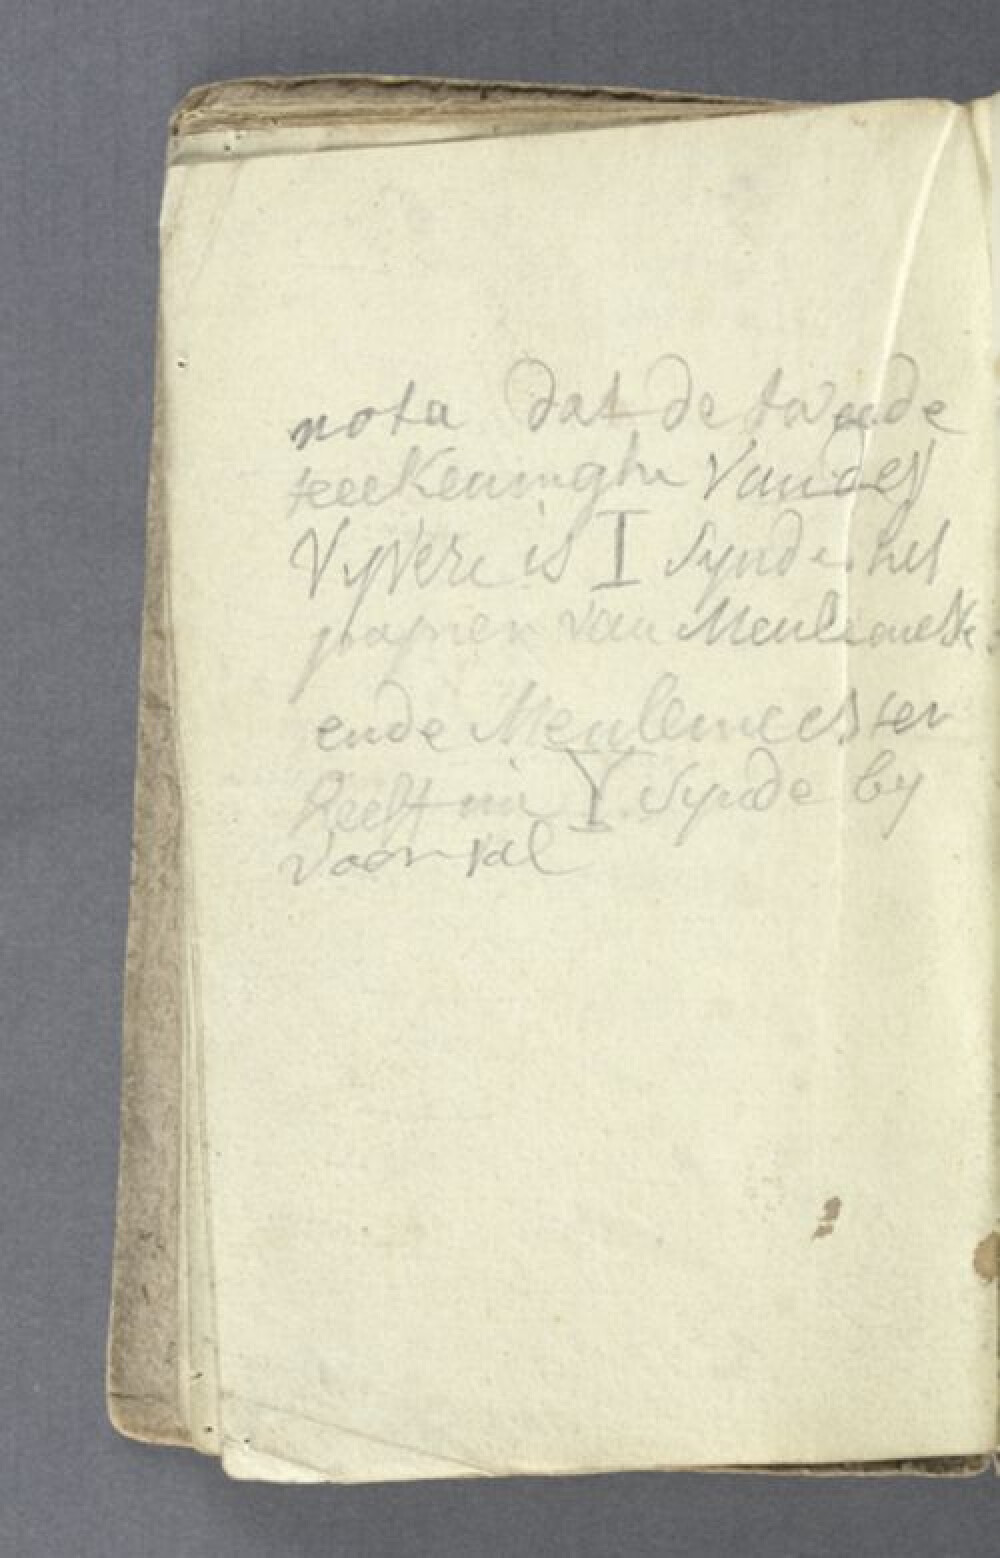 nota dat de tweede
teeckeninghe vander
Vyvere is I synde het
van Meuleneste
ende Meulemeester
heeft in Y synde by
voorval